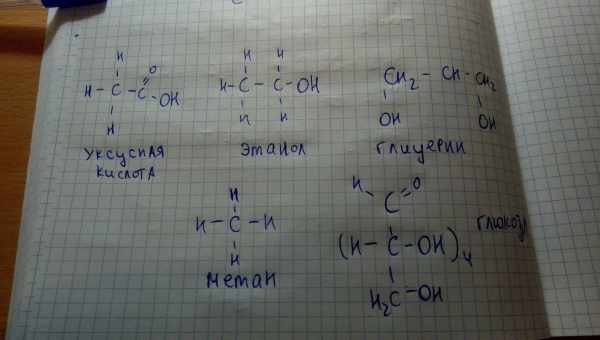 H
O
H - C - C - OH
H
уксусная
кислота
H H
H - C - C - OH
H H
этанол
CH2 - CH - CH2
OH OH
глицерин
H
H - C - H
H
метан
H O
C
(H - C - OH)4
H2C - OH
глюкоз